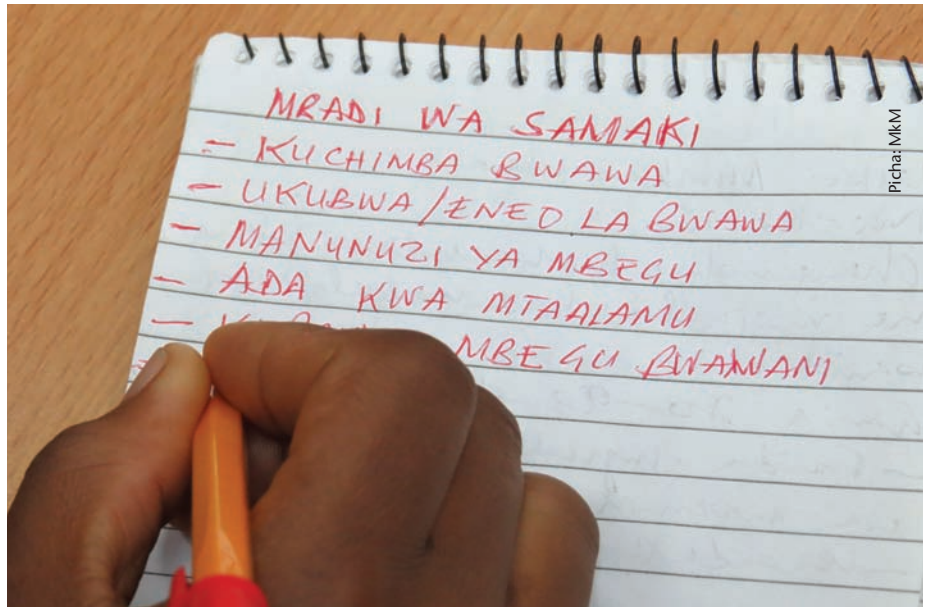 MRADI WA SAMAKI
- KUCHIMBA BWAWA
- UKUBWA/ENEO LA BWAWA
- MANUNUZI YA MBEGU
- ADA KWA MTAALAMU
- MBEGU BWAWANI
Picha: MkM